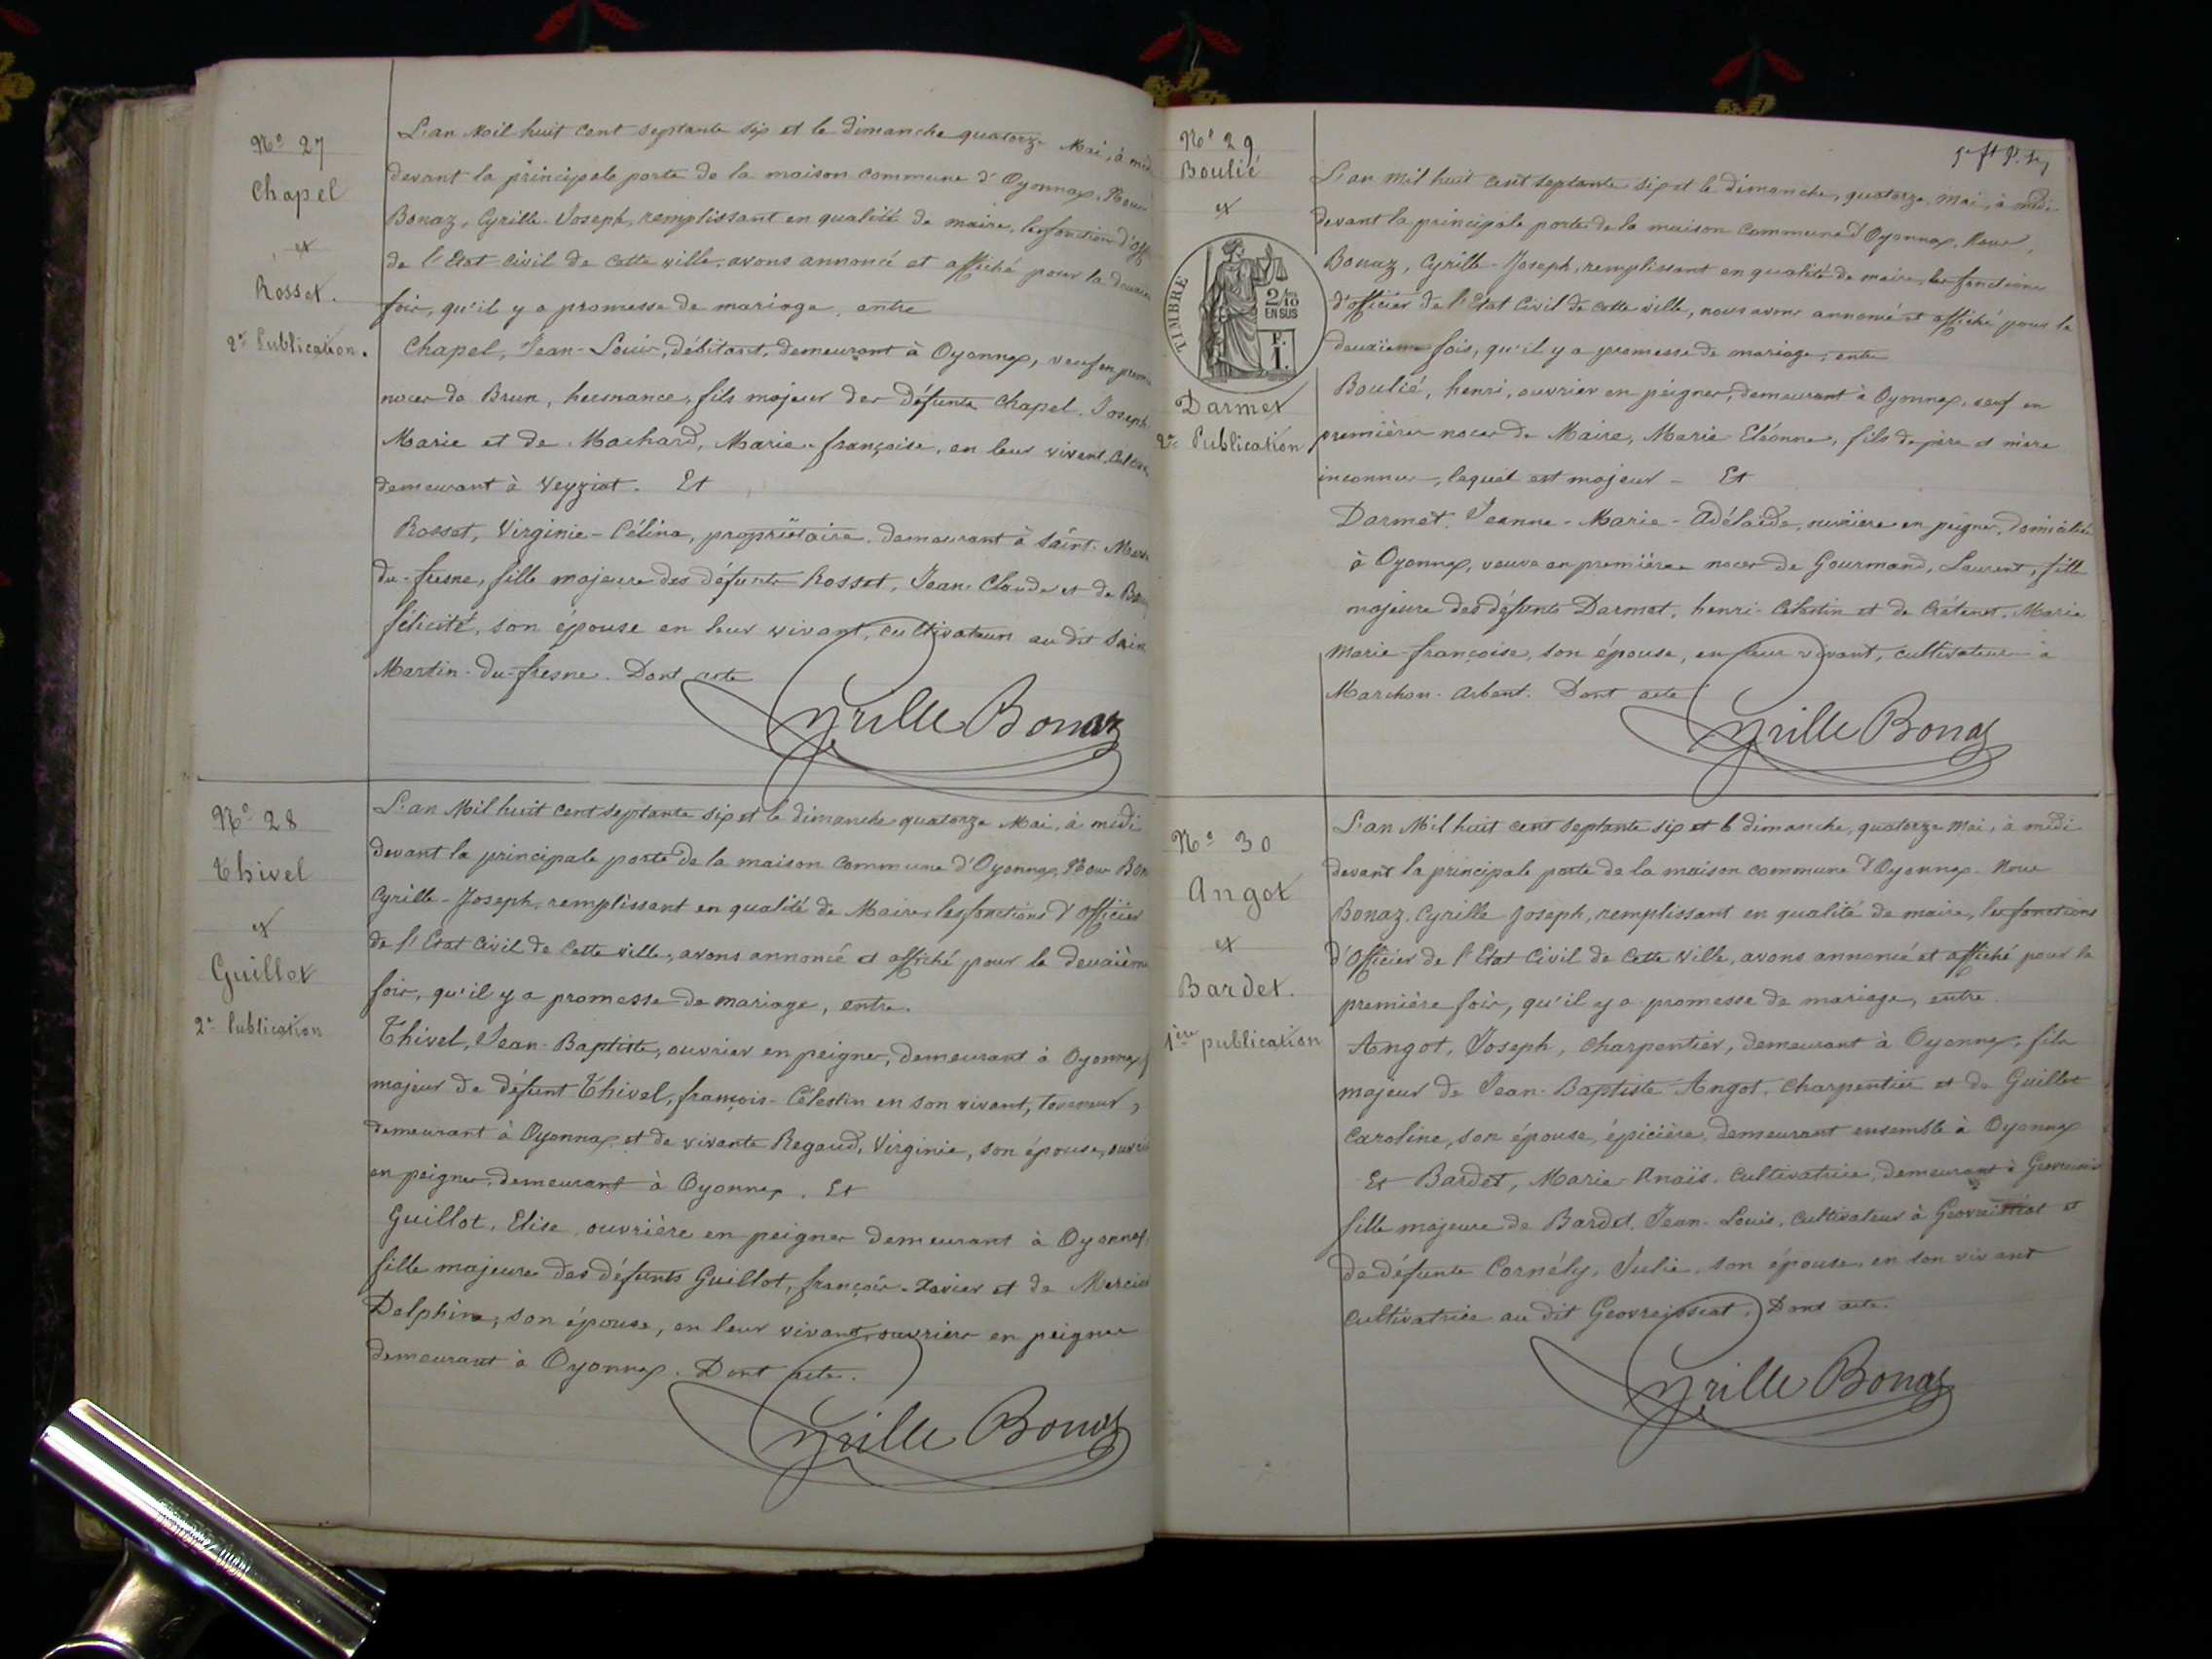 N° 27
Chapel
et
Rosset.
2e Publication.
L'an Mil huit cent septante six et le dimanche quatorze Mai, à midi
devant la principale porte de la maison commune d'Oyonnax. Nous
Bonaz, Cyrille-Joseph, remplissant en qualité de maire, les fonctions d'off
de l'Etat civil de cette ville, avons annoncé et affiché pour la deuxièm
fois, qu'il y a promesse de mariage, entre
Chapel, Jean-Louis, débitant, demeurant à Oyonnax, veuf en prem
noces de Brun, hermance, fils majeur des défunts Chapel, Joseph
Marie et de Machard, Marie-françoise, en leur vivant, cultiv
demeurant à Veyziat. Et
Rosset, Virginie-Célina, propriétaire, demeurant à Saint-Mart
du-fresne, fille majeure des défunts Rosset, Jean-Claude et de
félicité, son épouse en leur vivant, cultivateurs au dit Sain
Martin-du-fresne. Dont acte
Cyrille Bonaz
N° 28
Thivel
et
Guillot
2e Publication
L'an Mil huit cent septante six et le dimanche quatorze Mai, à midi
devant la principale porte de la maison commune d'Oyonnax, Nous Bon
Cyrille-Joseph, remplissant en qualité de Maire, les fonctions d'officier
de l'Etat civil de cette ville, avons annoncé et affiché pour la deuxième
fois, qu'il y a promesse de mariage, entre.
Thivel, Jean-Baptiste, ouvrier en peignes, demeurant à Oyonnax, f
majeur de défunt Thivel, françois-Célestin en son vivant, tourneur,
demeurant à Oyonnax et de vivante Regaud, Virginie, son épouse, ouvriè
en peignes, demeurant à Oyonnax. Et
Guillot, Elise, ouvrière en peignes demeurant à Oyonnax
fille majeure des défunts Guillot, françois-Xavier et de Mercier
Delphine, son épouse, en leur vivant, ouvriers en peignes
demeurant à Oyonnax. Dont acte.
Cyrille Bonaz
N° 29
Boulié
et
TIMBRE
2/10
EN SUS
F.
1.
Darmet
2e Publication
L'an mil huit cent septante six et le dimanche, quatorze, mai, à midi
devant la principale porte de la maison commune d'Oyonnax. Nous,
Bonaz, Cyrille-Joseph, remplissant en qualité de maire, les fonctions
d'officier de l'Etat Civil de cette ville, nous avons annoncé et affiché pour la
deuxième fois, qu'il y a promesse de mariage, entre
Boulié, henri, ouvrier en peignes, demeurant à Oyonnax, veuf en
premières noces de Maire, Marie Eléonne, fils de père et mère
inconnus, lequel est majeur - Et
Darmet, Jeanne-Marie-Adélaïde, ouvrière en peignes, domiciliée
à Oyonnax, veuve en premières noces de Gourmand, Laurent, fille
majeure des défunts Darmet, henri-Célestin et de Crétenet, Marie
Marie-françoise, son épouse, en leur vivant, cultivateurs à
Marchon-Arbent. Dont acte
Cyrille Bonaz
N° 30
Angot
et
Bardet.
1ère publication
L'an Mil huit cent septante six et le dimanche, quatorze Mai, à midi
devant la principale porte de la maison commune d'Oyonnax. Nous
Bonaz, Cyrille Joseph, remplissant en qualité de maire, les fonctions
d'Officier de l'Etat Civil de cette ville, avons annoncé et affiché pour la
première fois, qu'il y a promesse de mariage, entre.
Angot, Joseph, charpentier, demeurant à Oyonnax, fils
majeur de Jean-Baptiste Angot, charpentier et de Guillot
Caroline, son épouse, épicière, demeurant ensemble à Oyonnax
Et Bardet, Marie-Anaïs, cultivatrice, demeurant à
fille majeure de Bardet, Jean-Louis, cultivateur à Geovreissiat et
de défunte Cornély, Julie, son épouse, en son vivant
cultivatrice au dit Geovreissiat. Dont acte.
Cyrille Bonaz